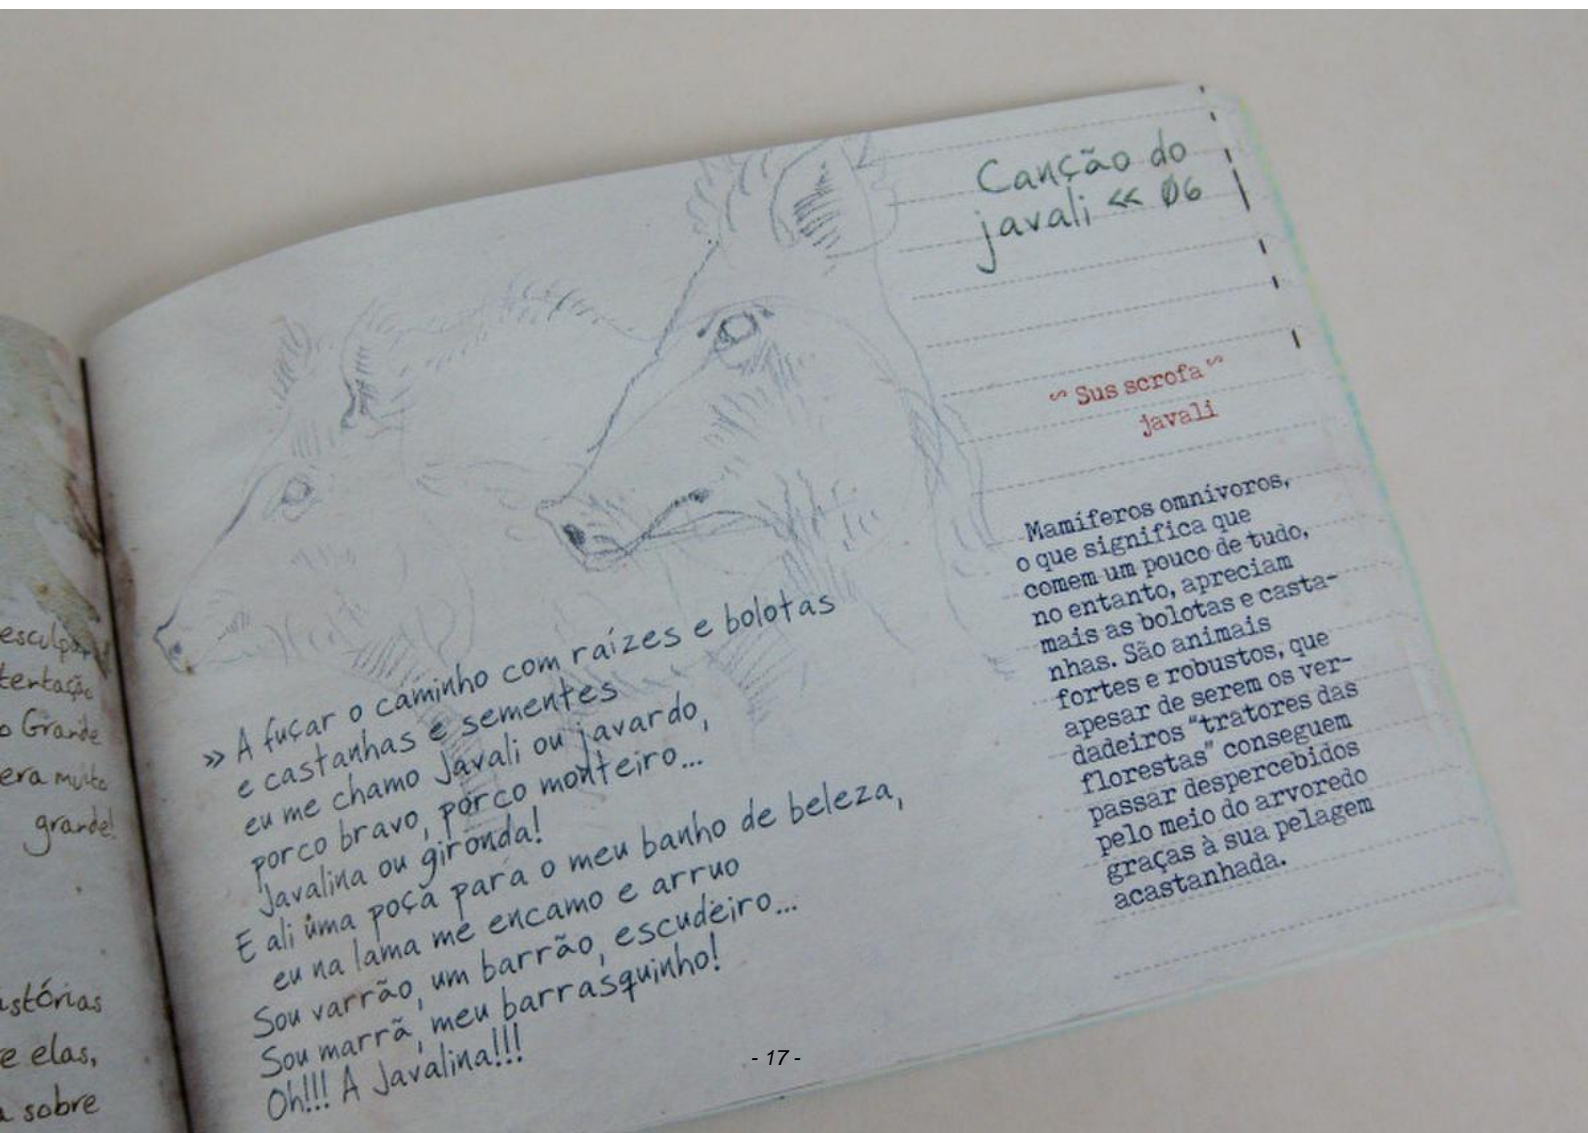 esculpa
tentação
o Grande
era muito
grande!
istórias
e elas,
a sobre
Canção do
javali « Ø6
~ Sus scrofa ~
javali
Mamíferos omnívoros,
o que significa que
comem um pouco de tudo,
no entanto, apreciam
mais as bolotas e casta-
nhas. São animais
fortes e robustos, que
apesar de serem os ver-
dadeiros "tratores das
florestas" conseguem
passar despercebidos
pelo meio do arvoredo
graças à sua pelagem
acastanhada.
» A fuçar o caminho com raízes e bolotas
e castanhas e sementes
eu me chamo Javali ou javardo,
porco bravo, porco monteiro...
Javalina ou gironda!
E ali uma poça para o meu banho de beleza,
eu na lama me encamo e arruo
Sou varrão, um barrão, escudeiro...
Sou marrã, meu barrasquinho!
Oh!!! A Javalina!!!
- 17 -